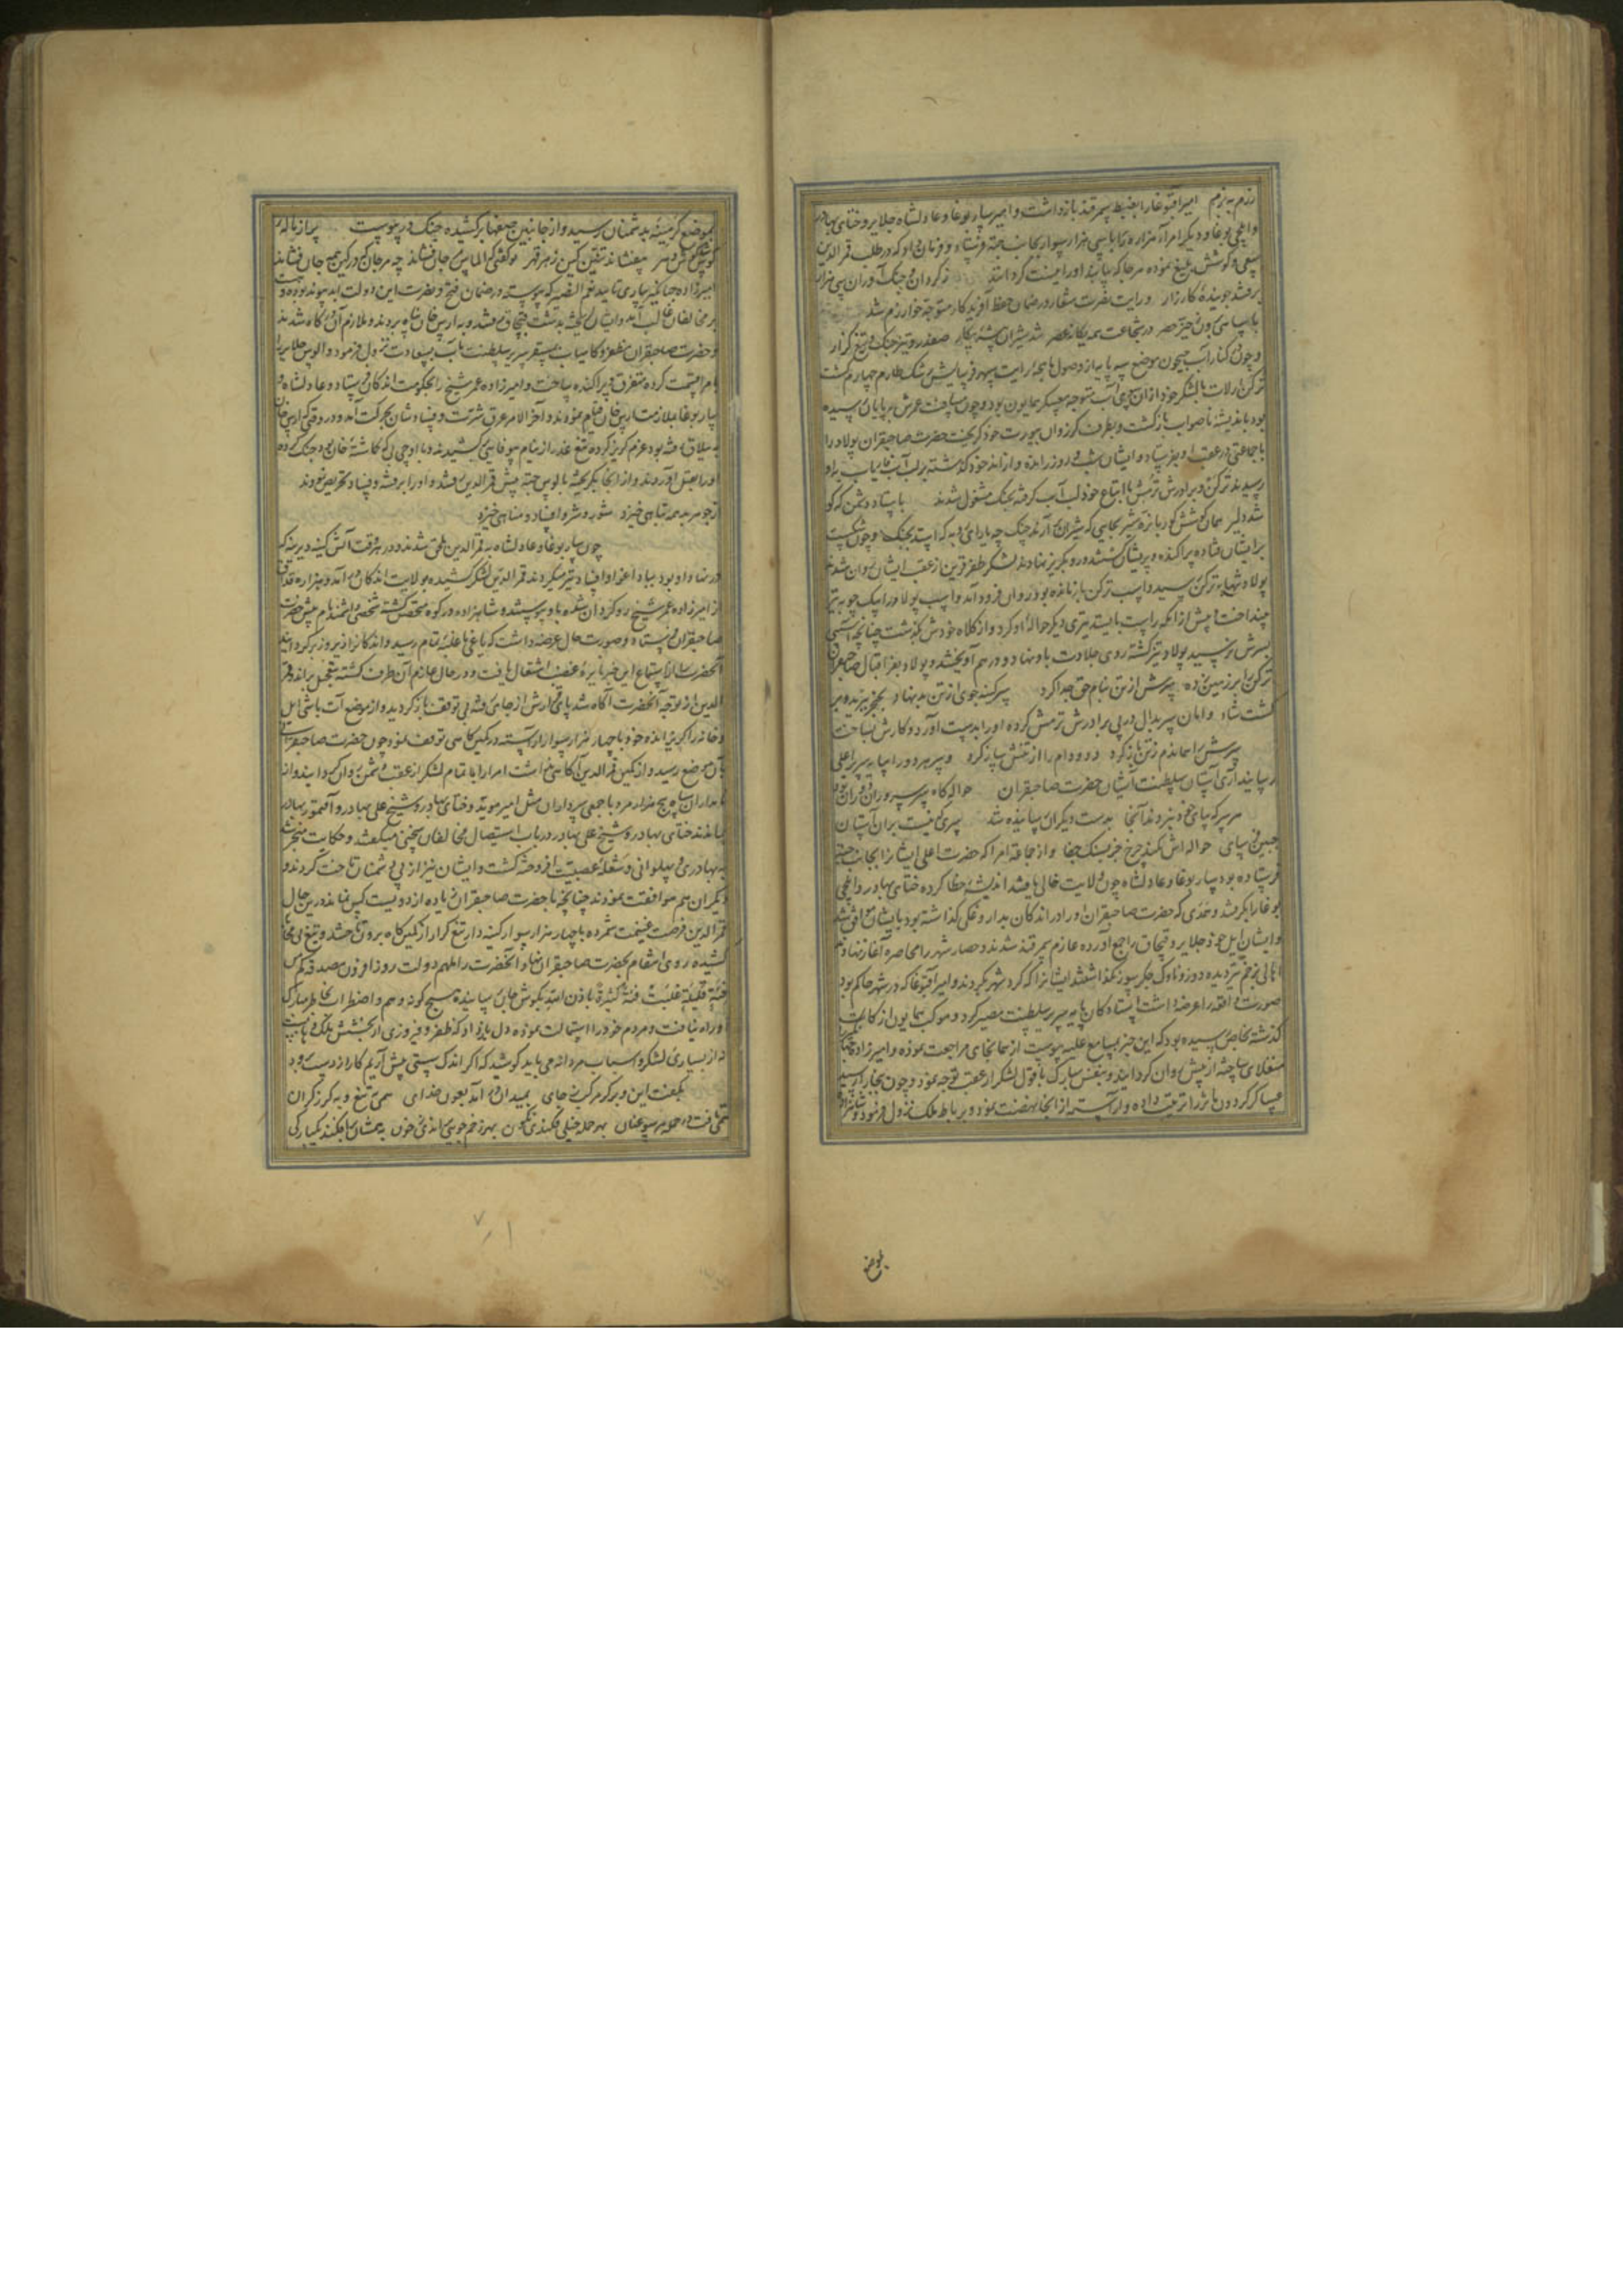 رزم به بزم امیر اقبوغا را بضبط سمرقند بازداشت و امیر سار بوغا و عادلشاه جلایر و ختای بهادر
و ایلچی بوغا و دیگر امرآء هزاره را با سی هزار سوار بجانب جته فرستاد و فرمان داد که در طلب قمر الدین
سعی و کوشش بلیغ نموده هرجا که بیابند او را نیست گردانند ز گردان و جنگ آوران سی هزار
برفتند جوینده کارزار و رایت نصرت شعار در ضمان حفظ آفریدگار متوجه خوارزم شد
با سپاهی برون ز حیز حصر در شجاعت همه یگانه عصر شد شیران بیشه پیکار صفدر و تیز جنگ و تیغ گزار
و چون کنار آب جیحون موضع سه پایه از وصول ماهچه رایت سپهر فرسایش رشک طارم چهارم گشت
ترکن ارلات با لشکر خود از آن روی آب متوجه معسکر همایون بود و چون مسافت عرش بپایان رسیده
بود باندیشه ناصواب بازگشت و بطرف کرزوان بیورت خود گریخت حضرت صاحبقران پولاد را
با جماعتی در عقب او بفرستاد و ایشان شب و روز رانده و از اندخود گذشته بر لب آب فاریاب باو
رسیدند ترکن و برادرش ترمش با اتباع خود لب آب گرفته بجنگ مشغول شدند
برایشان افتاده پراکنده و پریشان گشتند و رو بگریز نهادند لشکر ظفر قرین از عقب ایشان روان شدند
پولاد تنها به ترکن رسید و اسب ترکن بازمانده بود روان فرود آمد و اسب پولاد را بیک چوبه تیر
بینداخت و پیش از آنکه راست بایستد تیری دیگر حواله او کرد و از کلاه خودش گذشت چنانچه آسیبی
بسرش نرسید پولاد تیز گشته روی جلادت باو نهاد و در هم آویختند و پولاد بفر اقبال صاحبقران
ترکن را بر زمین زده سرش از تن بنام حق جدا کرد
گشت شاد و امان سربدال در پی برادرش ترمش کرده او را بدست آورد و کارش بساخت
سرش را هماندم ز تن باز کرد دد و دام را از تنش ساز کرد و سر هر دو را بپایه سریر اعلی
رسانید ازی آستان سلطنت آشیان حضرت صاحبقران حواله گاه سر سروران دوران بود
هر سر که بپای خود نبردند آنجا بدست دیگران رسانیده شد سری که نیست بر آن آستان
جبین سای حواله اش نکند چرخ جز بسنگ جفا و از جماعه امرا که حضرت اعلی ایشانرا بجانب جته
فرستاده بود سار بوغا و عادلشاه چون ولایت خالی یافتند اندیشه خطا کرده ختای بهادر و ایلچی
بوغا را بگرفتند و حمدی که حضرت صاحبقران او را در اندکان بداروغگی گذاشته بود با ایشان موافق شد
و ایشان ایل خود جلایر و قبچاق را جمع آورده عازم سمرقند شدند و حصار شهر را محاصره آغاز نهادند
اهالی بزخم تیر دیده دوز و ناوک جگر سوز نگذاشتند ایشانرا که گرد شهر گردند و امیر اقبوغا که در شهر حاکم بود
صورت واقعه را عرضه داشت ایستادگان پایه سریر سلطنت مصیر کرد و موکب همایون از کات
گذشته بخاص رسیده بود که این خبر بمسامع علیه پیوست از همانجای مراجعت نموده و امیرزاده جهانگیر را
منغلای ساخته از پیش روان گردانید و بنفس مبارک با قول لشکر از عقب توجه نمود و چون ببخارا رسید
عساکر گردون مآثر را ترتیب داده و آراسته از انجا نهضت نمود و برباط ملک نزول فرمود و شاهزاده
بموضع
بموضع کرمینه بدشمنان رسید و از جانبین صفها برکشیده جنگ در پیوست
امیرزاده جهانگیر بیاری تایید نعم النصیر که پیوسته در ضمان فتح و نصرت این دولت ابد پیوند بوده و هست
بر مخالفان غالب آمد و ایشان گریخته بدشت قبچاق رفتند و به ارس خان پناه بردند و ملازم آن درگاه شدند
و حضرت صاحبقران مظفر و کامیاب بمستقر سریر سلطنت مآب بسعادت نزول فرمود و الوس جلایر را
بامرا قسمت کرده متفرق و پراکنده ساخت و امیرزاده عمر شیخ را بحکومت اندکان فرستاد و عادلشاه و
سار بوغا بملازمت ارس خان قیام نمودند و آخر الامر عرق شرارت و فساد شان بحرکت آمد و در وقتی که ارس خان
به ییلاق رفته بود عزم گریز کرده تیغ غدر از نیام بیوفایی کشیدند و با اوچی بی که گماشته خان بود جنگ کرده
او را بقتل آوردند و از انجا بگریخته بالوس جته پیش قمر الدین رفتند و او را بر فتنه و فساد تحریص نمودند
ز جوهر بد همه تباهی خیزد شور و شر و افساد و مناهی خیزد
چون سار بوغا و عادلشاه به قمر الدین ملحق شدند و در هر وقت آتش کینه دیرینه که
در نهاد او بود بباد اغوا و افساد تیز میکردند قمر الدین لشکر کشیده بولایت اندکان در آمد و هزاره قداق
از امیرزاده عمر شیخ روگردان شده باو پیوستند و شاهزاده در کوه متحصن گشته شخصی دانشمند نام پیش حضرت
صاحبقران فرستاد و صورت حال عرضه داشت که یاغی با غلبه تمام رسید و اندکانرا زیر و زبر گردانید
آنحضرت را از استماع این خبر نایره غضب اشتعال یافت و در حال عازم آن طرف گشته بتعجیل براند و قمر
الدین از توجه آنحضرت آگاه شد پای قرارش از جای رفته بی توقف باز گردید و از موضع آت باشی ایل
و خانه را گریزانده خود با چهار هزار سوار آراسته در کمین گاهی توقف نمود چون حضرت صاحبقرانی
بآن موضع رسید و از کمین قمر الدین آگاهی نداشت امرا را با تمام لشکر از عقب دشمن روان گردانید و از
نامداران سپاه پنج هزار مرد با جمعی سرداران مثل امیر مؤید و ختای بهادر و شیخ علی بهادر و آقتمور بهادر
بماندند ختای بهادر و شیخ علی بهادر در باب استیصال مخالفان سخنی میگفتند و حکایت منجر شد
به بهادری و پهلوانی و شعله عصبیت افروخته گشت و ایشان نیز از پی دشمنان تاخت کردند و
دیگران هم موافقت نمودند چنانچه با حضرت صاحبقران زیاده از دویست کس نماند در این حال
قمر الدین فرصت غنیمت شمرده با چهار هزار سوار کینه دار تیغ گزار از کمین گاه برون تاختند و تیغ
کشیده روی انتقام بحضرت صاحبقران نهاد و آنحضرت را ملهم دولت روز افزون مصدوقه کم من
فئة قلیلة غلبت فئة کثیرة باذن الله بگوش جان رسانیده هیچ گونه وهم و اضطراب بخاطر مبارک
او راه نیافت و مردم خود را استمالت نموده دل باز داد که ظفر و فیروزی از بخشش ملک وهابست
نه از بسیاری لشکر و اسباب مردانه می باید کوشید که اگر اندک سستی پیش آریم کار از دست برود
بگفت این و برکرد مرکب ز جای بمیدان در آمد بعون خدای همی تیغ و به گرز گران
بهر حمله خیلی فکندی نگون بهر زخم جویی براندی ز خون